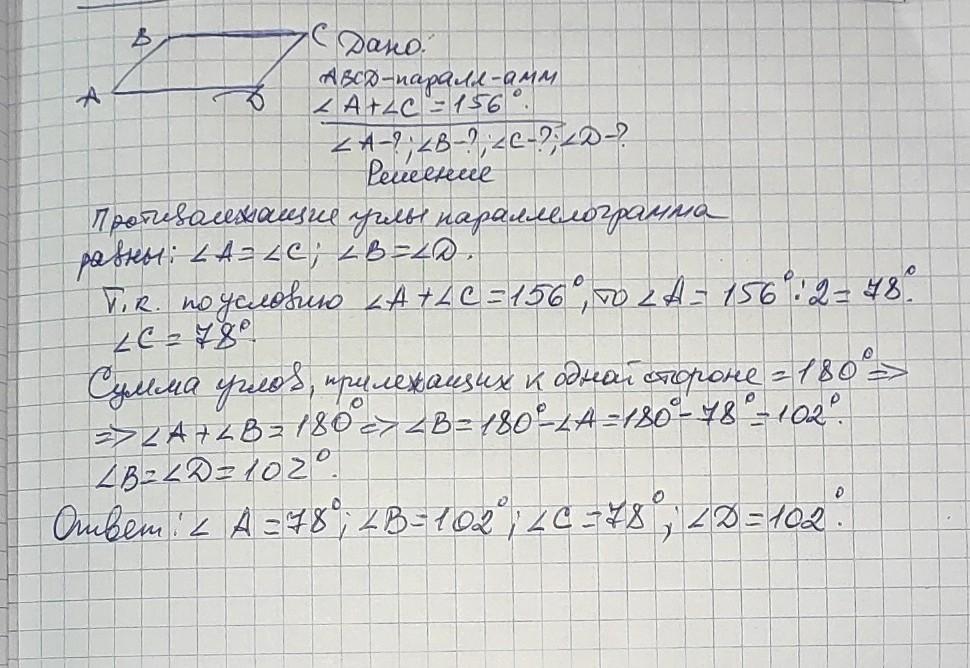 B C Дано:
ABCD-паралл-амм
A D ∠A+∠C=156°.
∠A-?; ∠B-?; ∠C-?; ∠D-?
Решение
Противолежащие углы параллелограмма
равны: ∠A=∠C; ∠B=∠D.
Т.к. по условию ∠A+∠C=156°, то ∠A=156°:2=78°.
∠C=78°.
Сумма углов, прилежащих к одной стороне =180°=>
=>∠A+∠B=180°=>∠B=180°-∠A=180°-78°=102°.
∠B=∠D=102°.
Ответ: ∠A=78°; ∠B=102°; ∠C=78°; ∠D=102°.